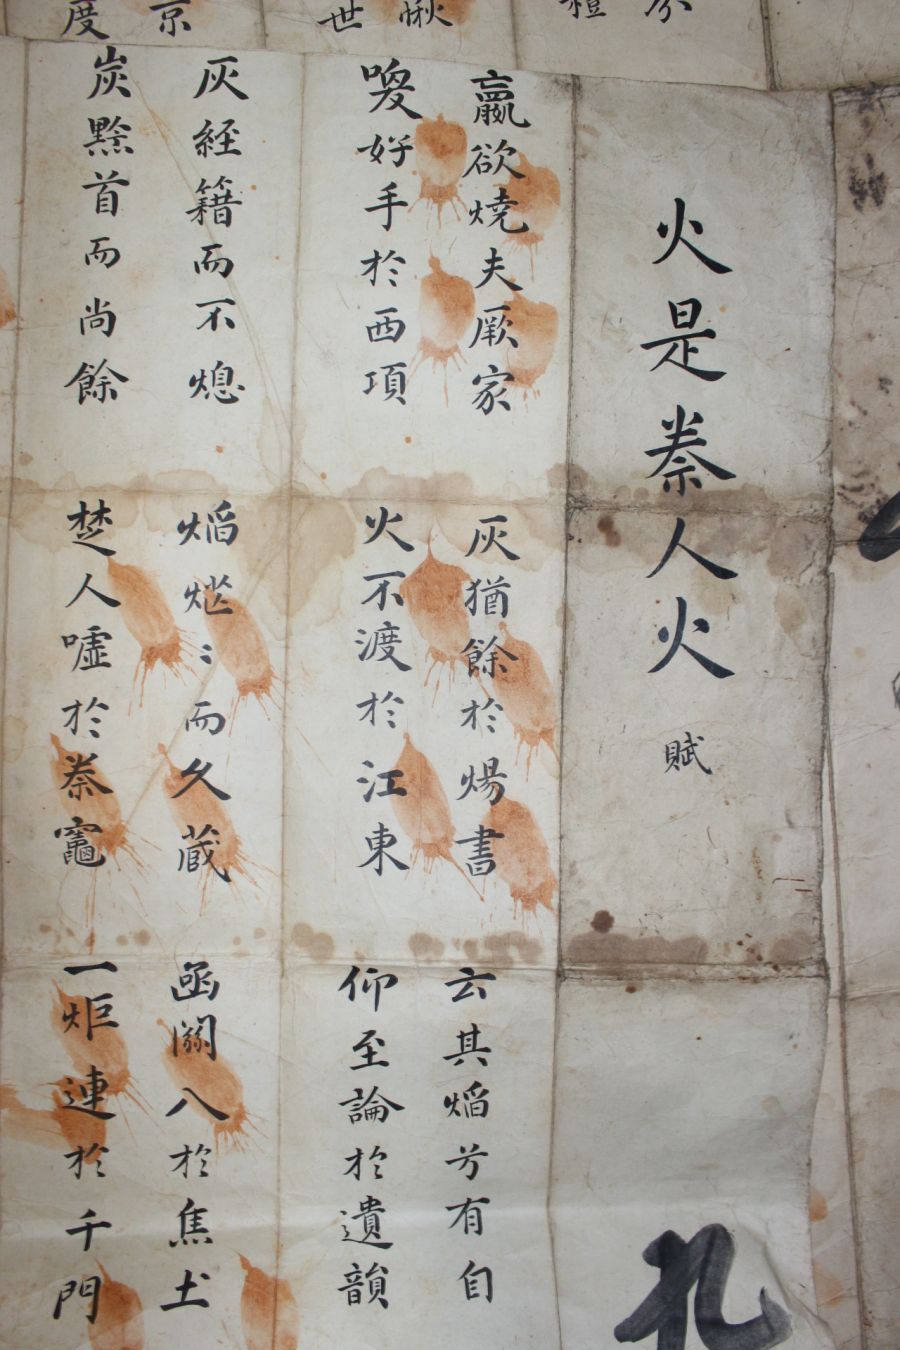 火是秦人火 賦
嬴欲燒夫厥家 灰猶餘於煬書 云其焰兮有自
喫好手於西項 火不渡於江東 仰至論於遺韻
灰経籍而不熄 焰〻而久蔵 函關入於焦土
炭黔首而尚餘 楚人噓於秦竈 一炬連於千門